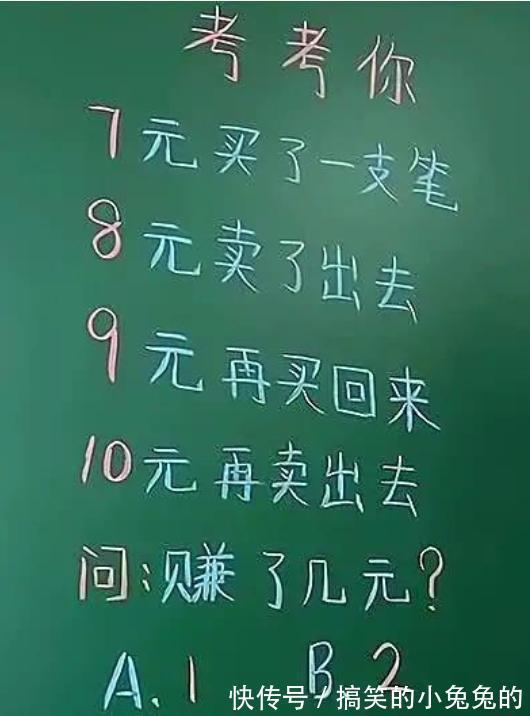 考考你
7元买了一支笔
8元卖了出去
9元再买回来
10元再卖出去
问:赚了几元?
A.1 B.2
快传号/搞笑的小兔兔的